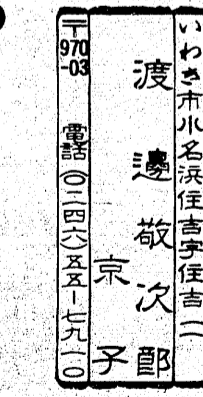 いわき市小名浜住吉字住吉一一
渡邊敬次郎
京子
〒970-03
電話(〇二四六)五五―七九一〇